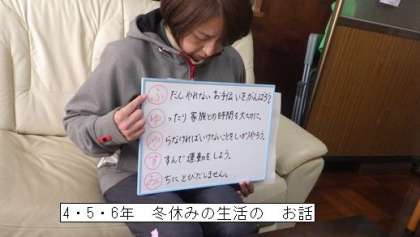 ふだしやれないお手伝いをがんばろう。
ゆったり家族との時間を大切に。
やらなければいけないことをしっかりやろう。
すすんで運動をしよう。
みちにとびだしません。
4・5・6年　冬休みの生活の　お話